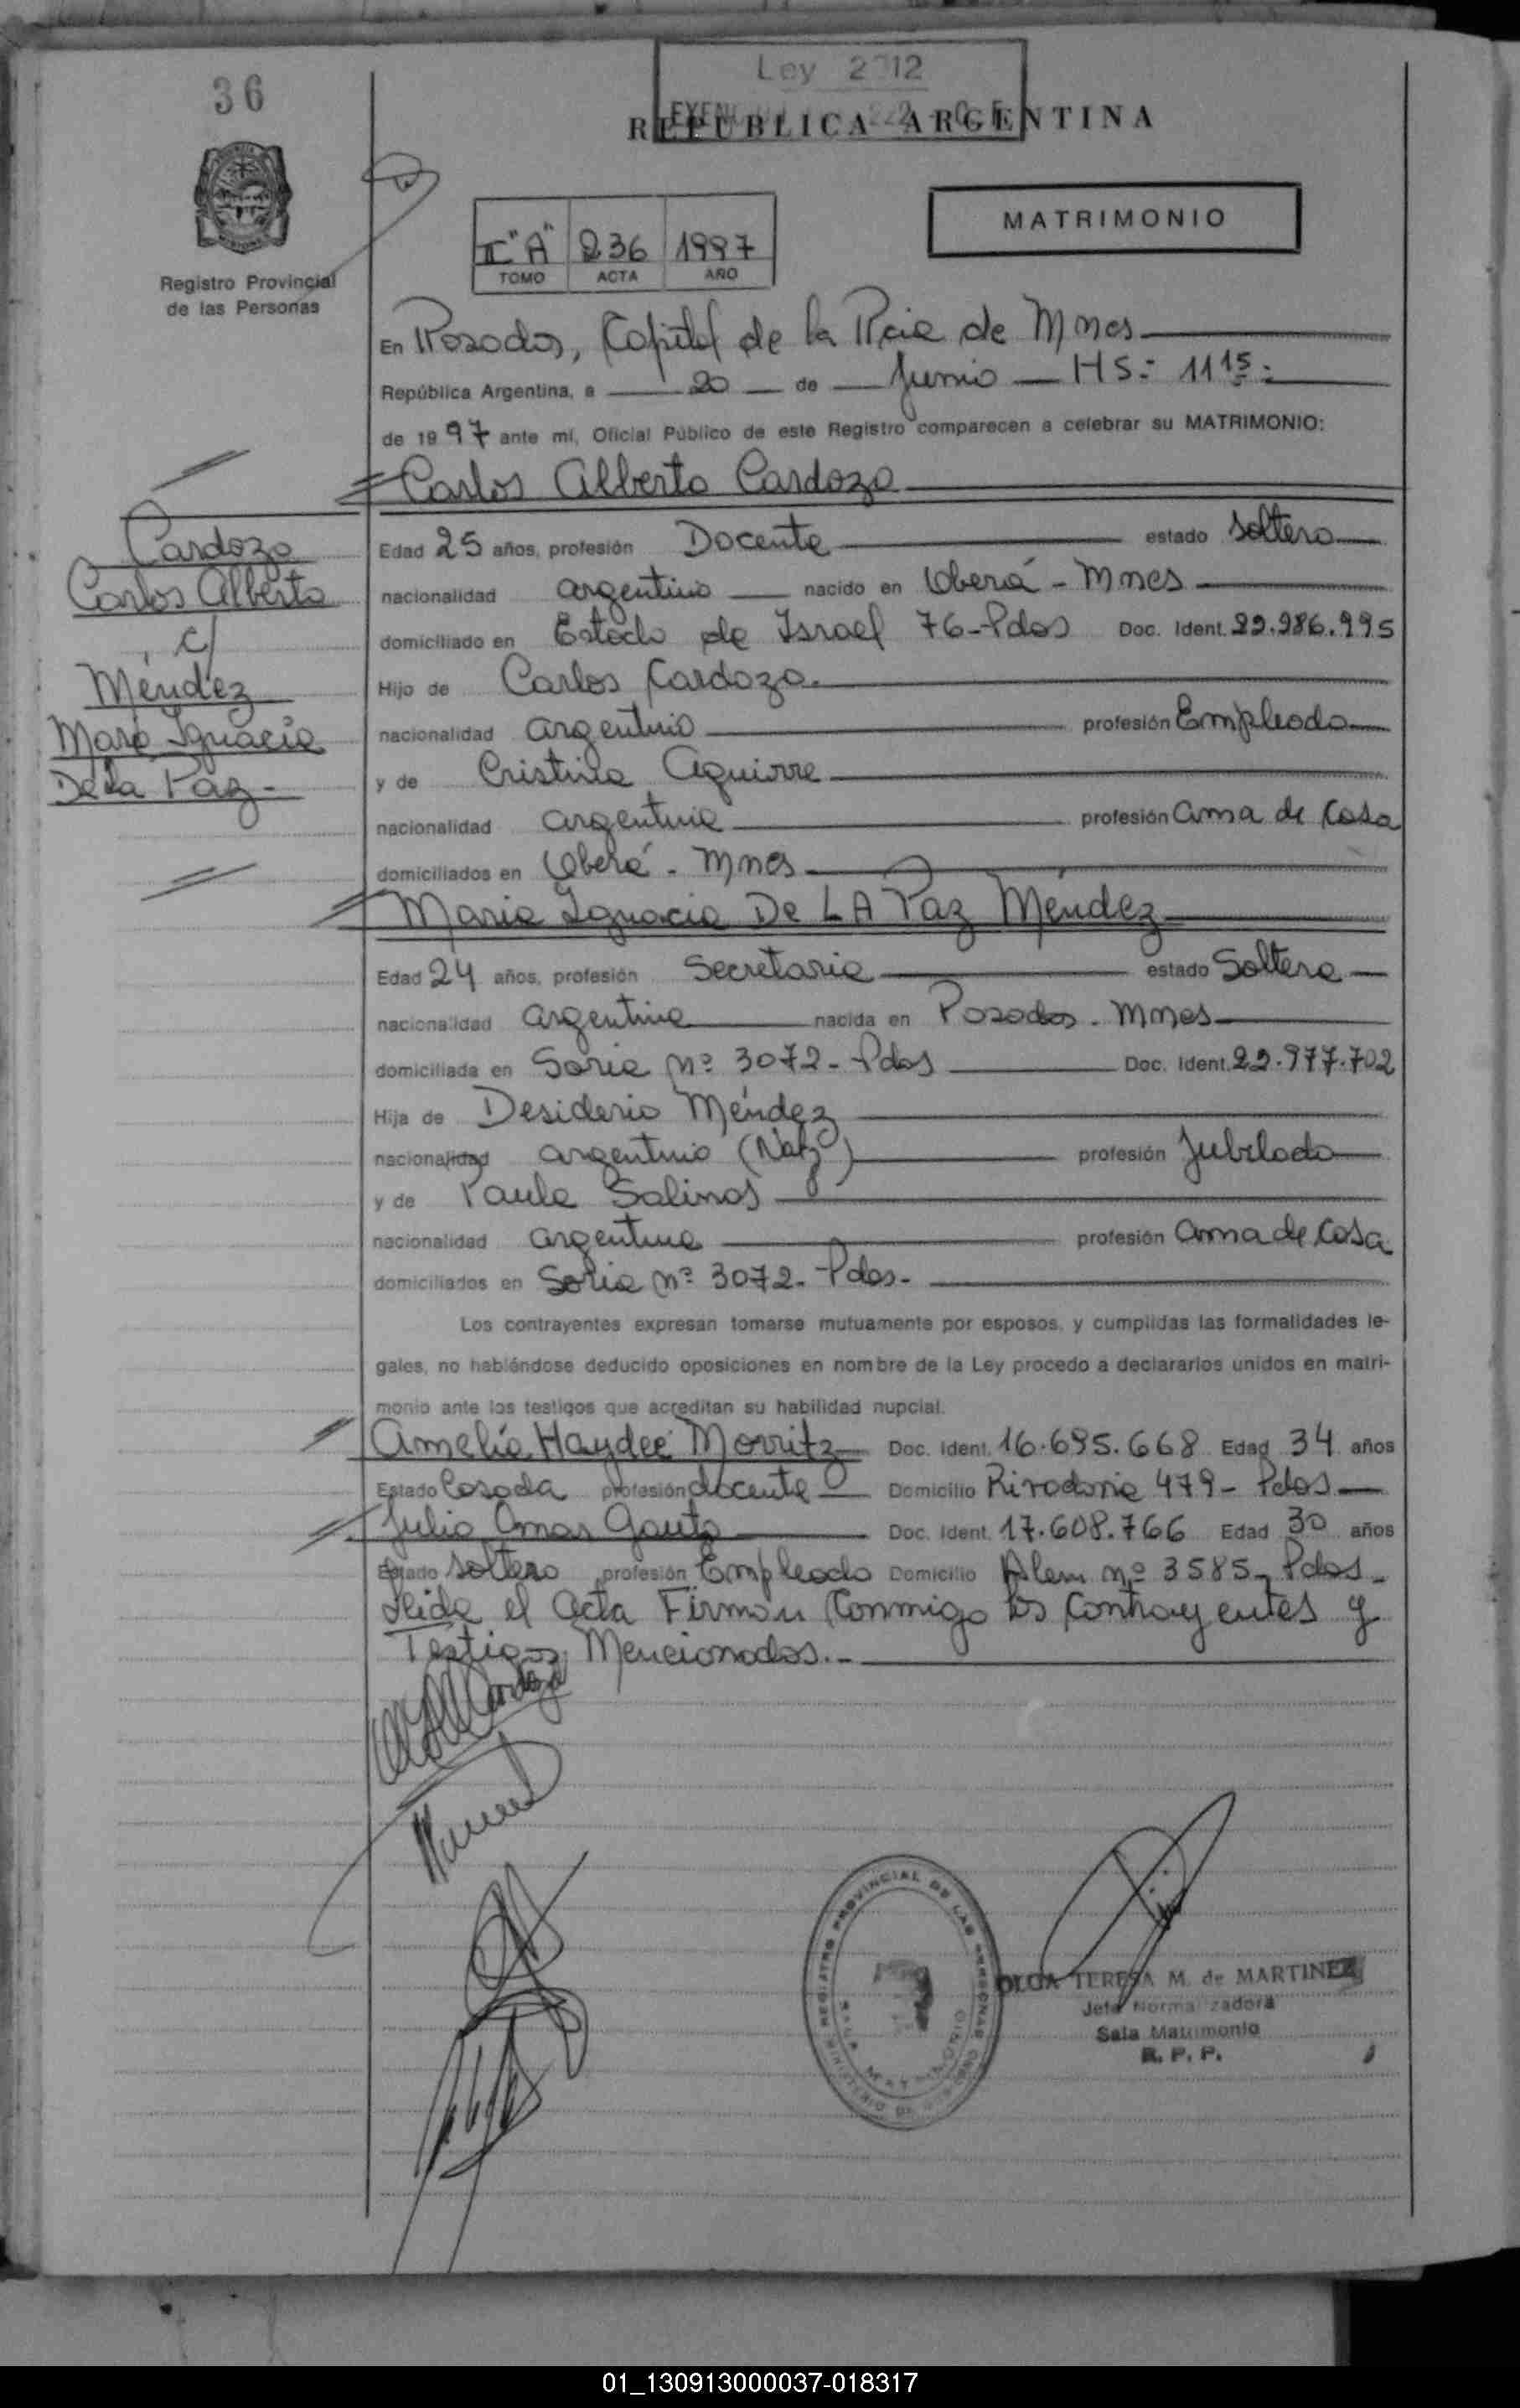 36
Ley 2212
REPUBLICA ARGENTINA
MATRIMONIO
II "A" 236 1997
TOMO ACTA AÑO
Registro Provincial
de las Personas
En Posadas, Capital de la Pcia de Mnes
República Argentina, a 20 de Junio HS: 11 15
de 1997 ante mí, Oficial Público de este Registro comparecen a celebrar su MATRIMONIO:
Carlos Alberto Cardozo
Cardozo
Carlos Alberto
c/
Méndez
María Ignacia
De La Paz.-
Edad 25 años, profesión Docente estado soltero
nacionalidad argentino nacido en Oberá - Mnes
domiciliado en Estado de Israel 76-Pdas Doc. Ident. 22.986.995
Hijo de Carlos Cardozo.
nacionalidad argentino profesión Empleado
y de Cristina Aguirre
nacionalidad argentina profesión ama de casa
domiciliados en Oberá - Mnes
María Ignacia De LA Paz Méndez
Edad 24 años, profesión Secretaria estado Soltera
nacionalidad argentina nacida en Posadas - Mnes
domiciliada en Soria nº 3072 - Pdas Doc. Ident. 22.977.702
Hija de Desiderio Méndez
nacionalidad argentino (Natzº) profesión Jubilado
y de Paula Salinas
nacionalidad argentina profesión ama de casa
domiciliados en Soria nº 3072 - Pdas-
Los contrayentes expresan tomarse mutuamente por esposos, y cumplidas las formalidades le-
gales, no habiéndose deducido oposiciones en nombre de la Ley procedo a declararlos unidos en matri-
monio ante los testigos que acreditan su habilidad nupcial.
Amelia Haydee Morritz Doc. Ident. 16.695.668 Edad 34 años
Estado Casada profesión docente Domicilio Rivadavia 479 - Pdas
Julio Omar Gauto Doc. Ident. 17.608.766 Edad 30 años
Estado soltero profesión Empleado Domicilio Alem nº 3585 - Pdas-
Leída el Acta Firman Conmigo los Contrayentes y
Testigos Mencionados.-
REGISTRO PROVINCIAL DE LAS PERSONAS
OLGA TERESA M. de MARTINEZ
Jefa Normalizadora
Sala Matrimonio
R. P. P.
01_130913000037-018317